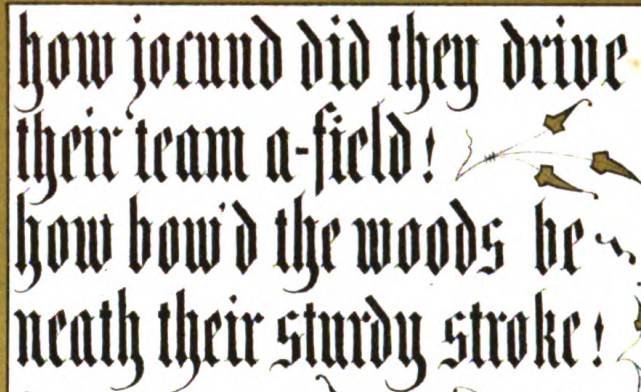 how jocund did they drive
their team a-field!
how bow'd the woods be
neath their sturdy stroke!